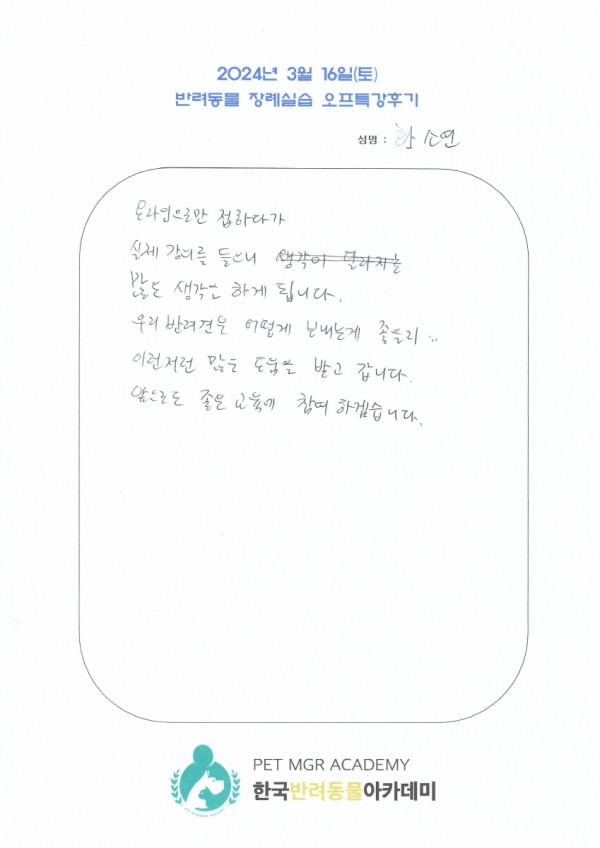 2024년 3월 16일(토)
반려동물 장례실습 오프특강후기
성명 : 소연
온라인으로만 접하다가
실제 강의를 들으니 생각이 달라지는
많은 생각을 하게 됩니다.
우리 반려견은 어떻게 보내는게 좋을지..
이런저런 많은 도움을 받고 갑니다.
앞으로도 좋은 교육에 참여 하겠습니다.
PET MGR ACADEMY
한국반려동물아카데미